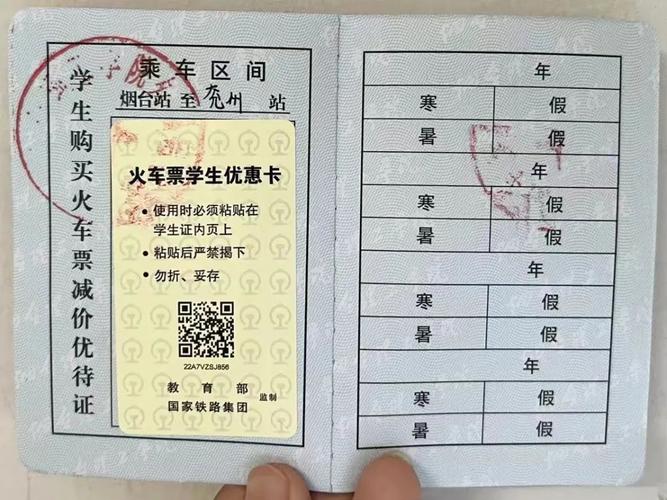 学生购买火车票减价优待证
乘车区间
烟台站至兖州站
火车票学生优惠卡
• 使用时必须粘贴在
学生证内页上
• 粘贴后严禁揭下
• 勿折、妥存
22A7VZSJ856
教育部
国家铁路集团
监制
年
寒 假
暑 假
年
寒 假
暑 假
年
寒 假
暑 假
年
寒 假
暑 假